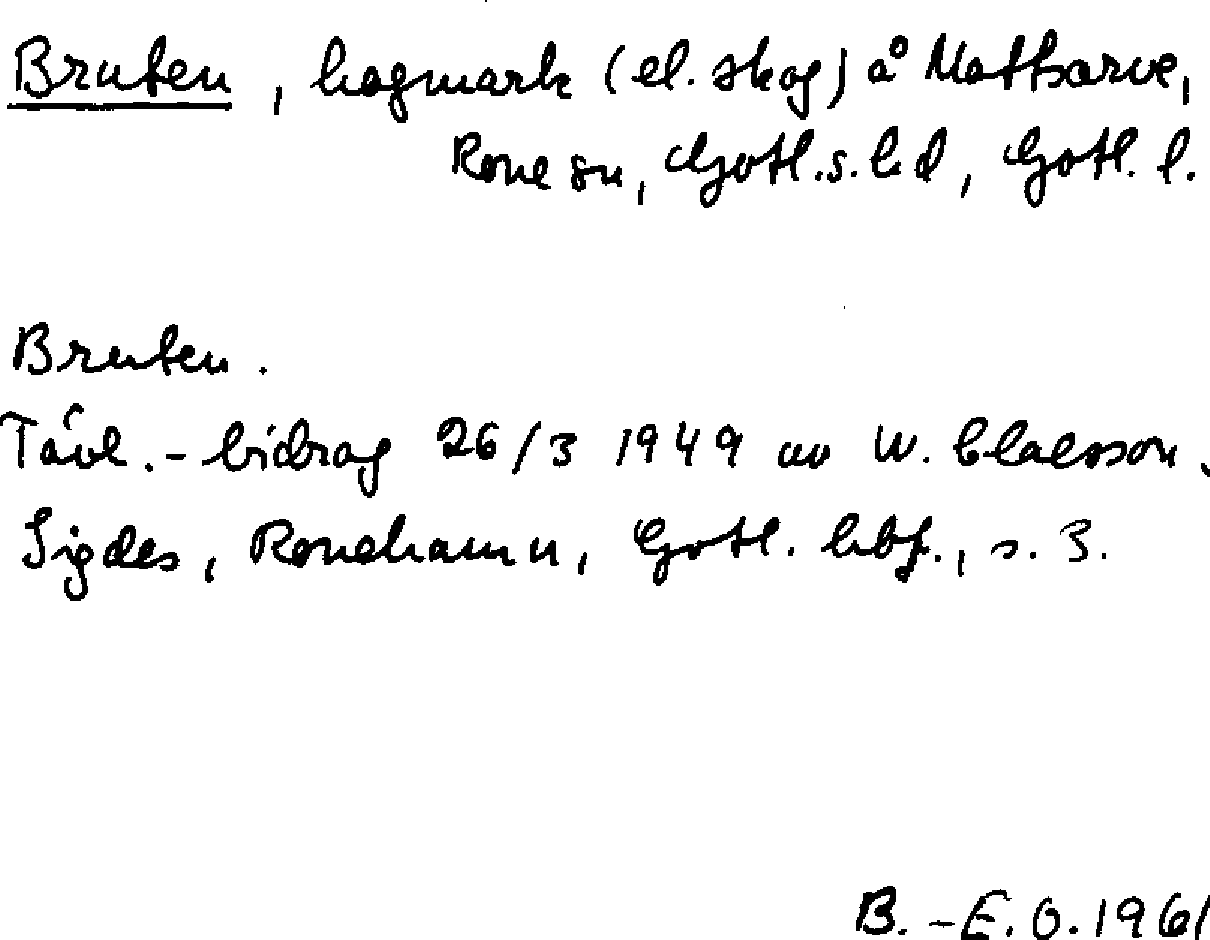 Bruten, hagmark (el. skog) å Mattsarve,
Rone sn, Gotl.s. hd, Gotl. l.
Bruten.
Tävl.-bidrag 26/3 1949 av W. Claesson,
Sigdes, Ronehamn, Gotl. hbf., s. 3.
B.-E. O. 1961